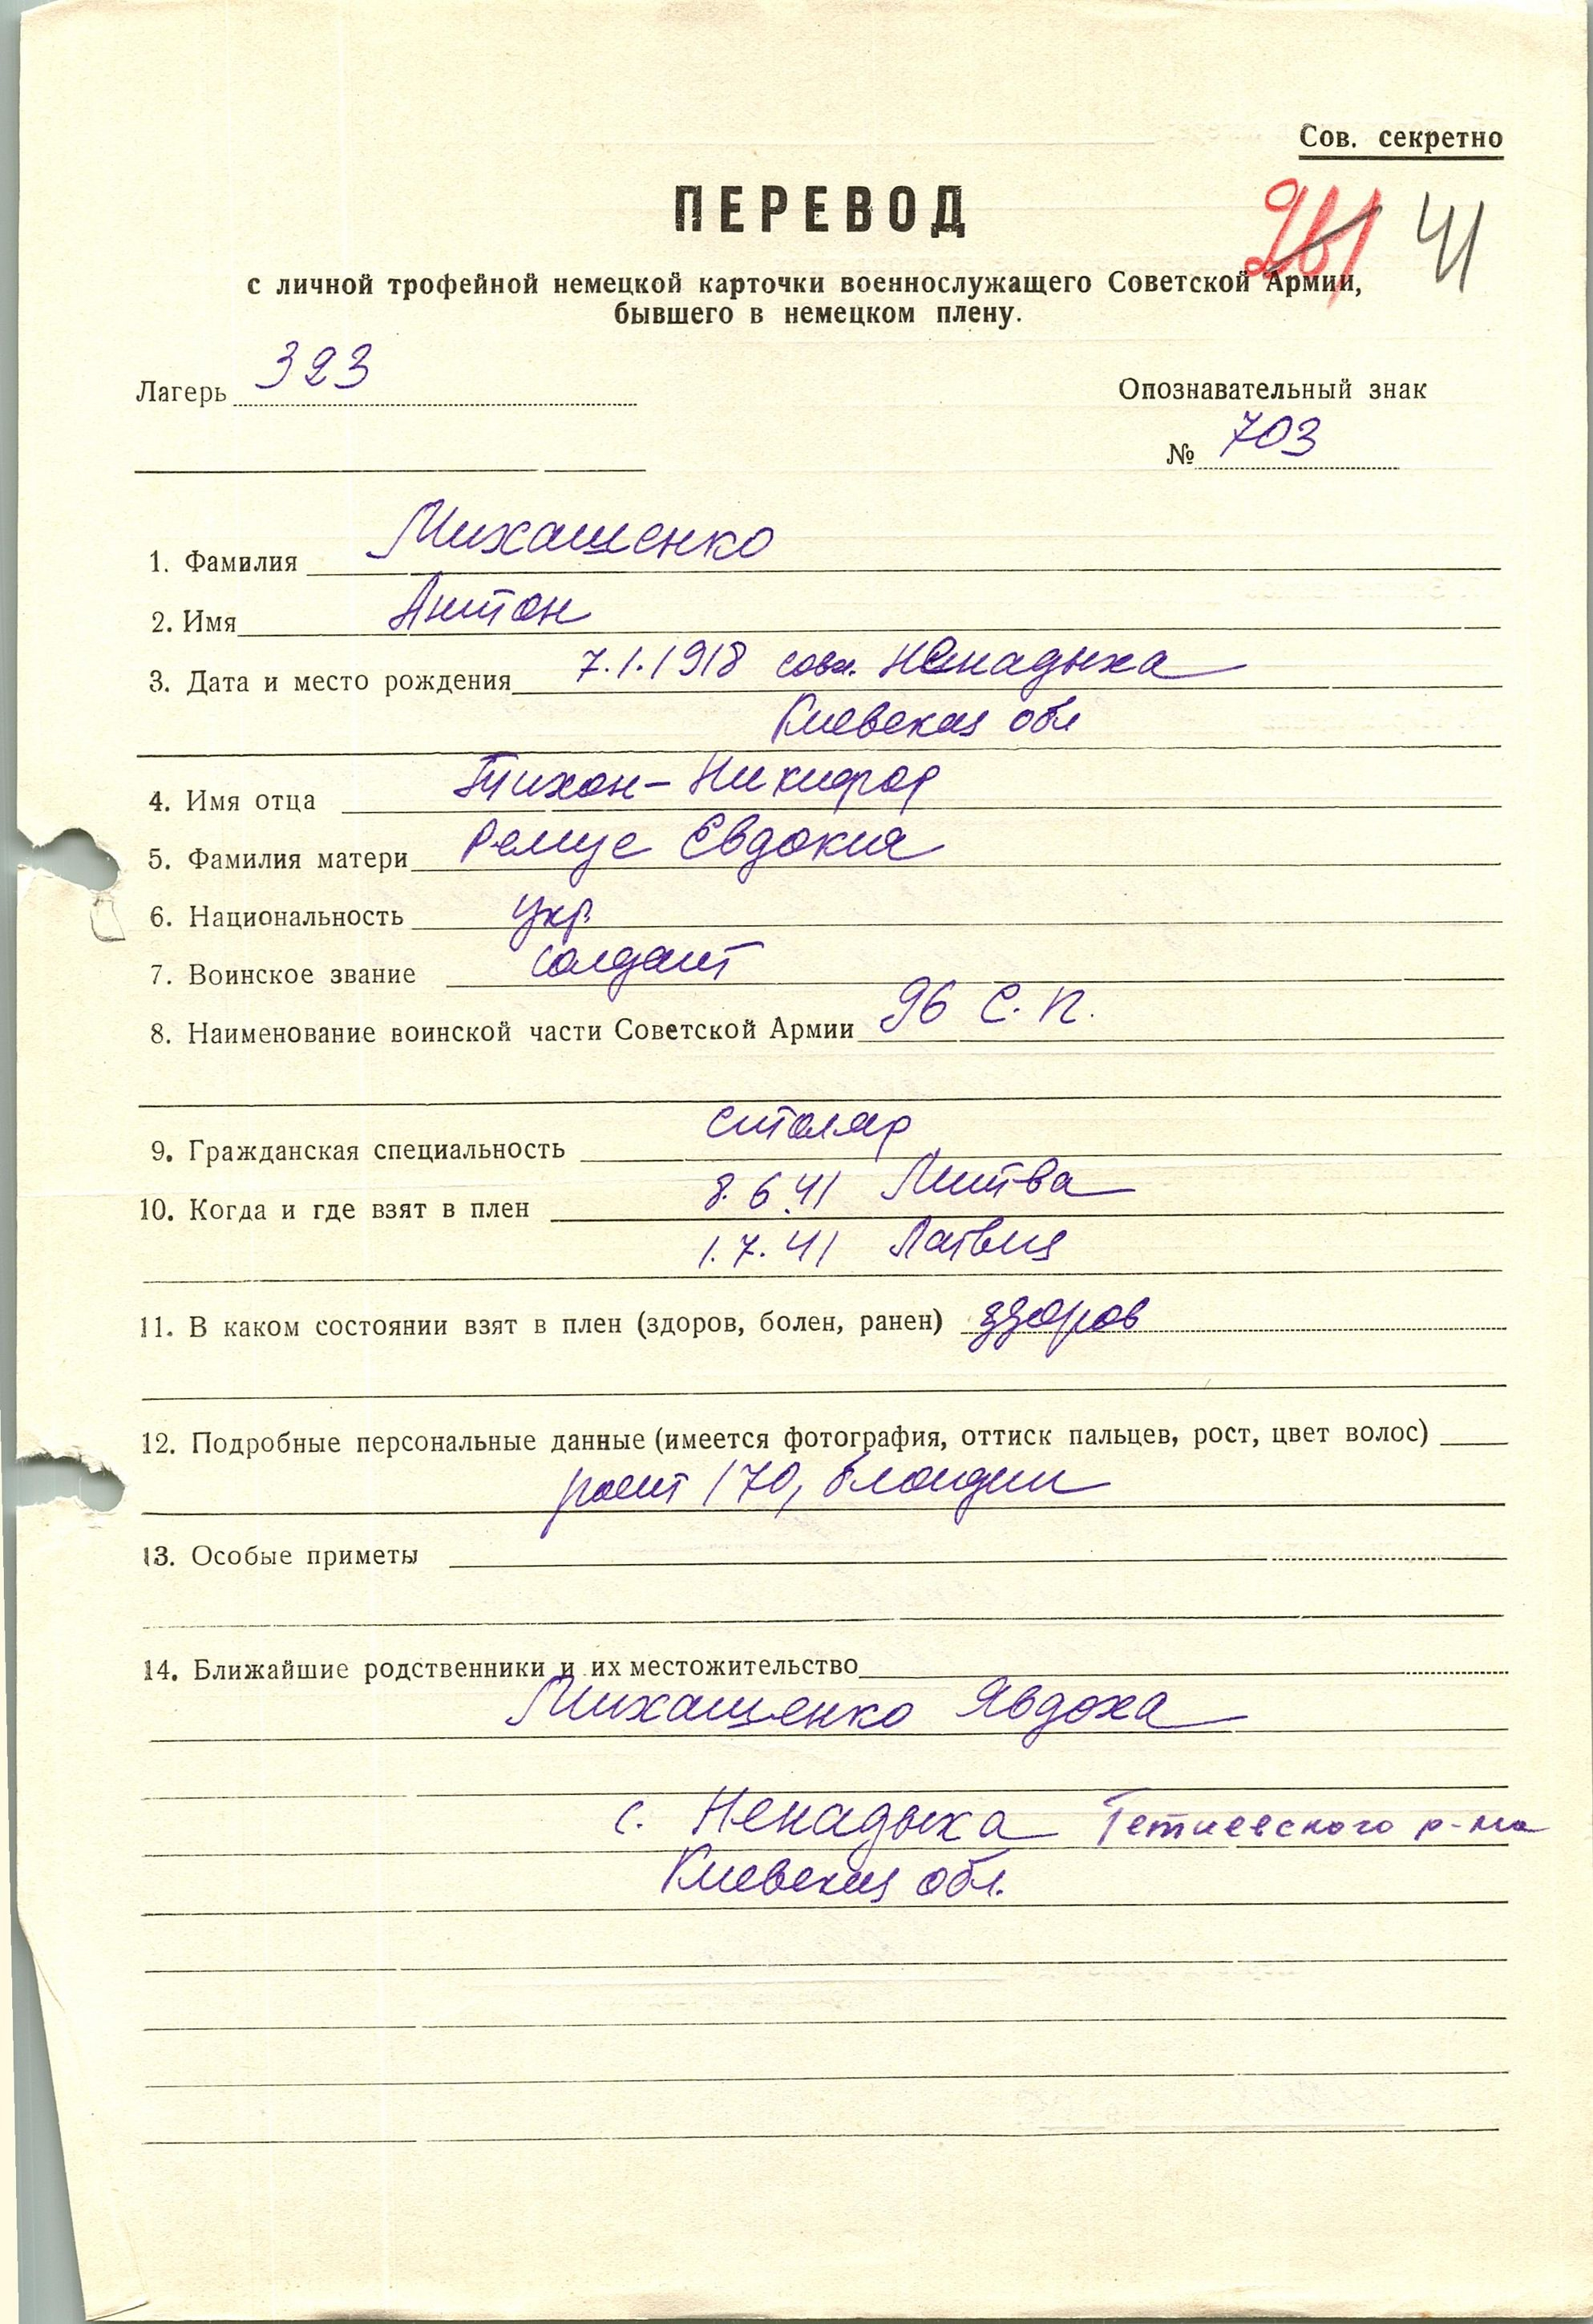 Сов. секретно
ПЕРЕВОД
41
с личной трофейной немецкой карточки военнослужащего Советской Армии,
бывшего в немецком плену.
Лагерь 323
Опознавательный знак
№ 703
1. Фамилия Михашенко
2. Имя Антон
3. Дата и место рождения 7.1.1918 Ненадыха
Киевская обл
4. Имя отца Тихон - Никифор
5. Фамилия матери Ремус Евдокия
6. Национальность укр.
7. Воинское звание солдат
8. Наименование воинской части Советской Армии 96 С. П.
9. Гражданская специальность столяр
10. Когда и где взят в плен 8.6.41 Литва
1.7.41 Латвия
11. В каком состоянии взят в плен (здоров, болен, ранен) здоров
12. Подробные персональные данные (имеется фотография, оттиск пальцев, рост, цвет волос)
рост 170, блондин
13. Особые приметы
14. Ближайшие родственники и их местожительство
Михащенко Явдоха
с. Ненадыха Тетиевского р-на
Киевская обл.